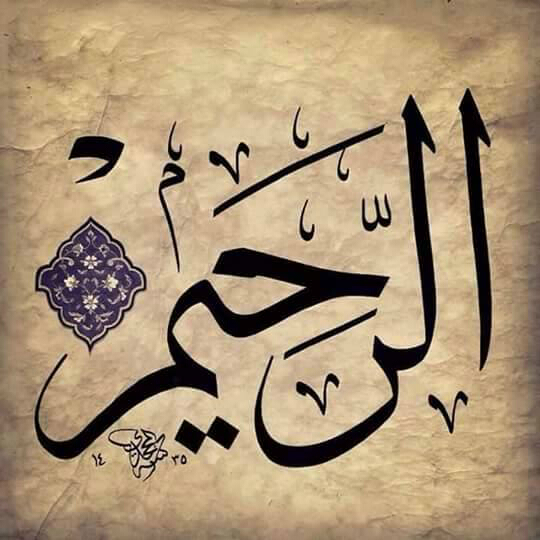 الرَّحِيمُ
١٤٣٥